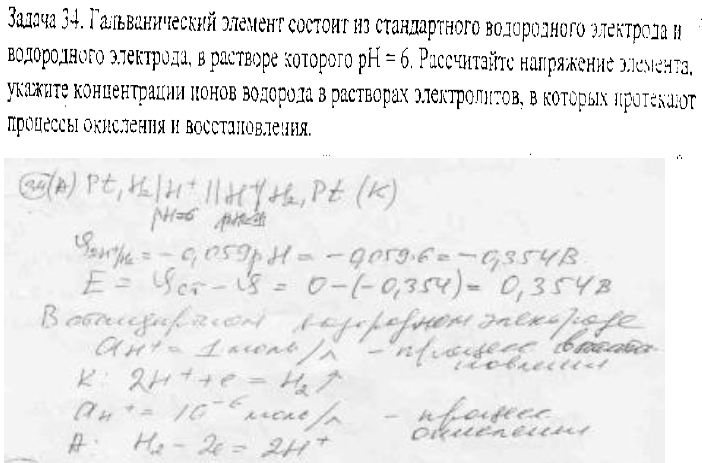 Задача 34. Гальванический элемент состоит из стандартного водородного электрода и
водородного электрода, в растворе которого pH = 6. Рассчитайте напряжение элемента,
укажите концентрации ионов водорода в растворах электролитов, в которых протекают
процессы окисления и восстановления.
34 (A) Pt, H₂ | H⁺ || H⁺ | H₂, Pt (K)
pH=6
φ2H⁺/H₂ = -0,059pH = -0,059·6 = -0,354 В
E = φст - φ = 0-(-0,354) = 0,354 В
В водородном электроде
aH⁺ = 1 моль/л - процесс
новления
К: 2H⁺ + e = H₂↑
aH⁺ = 10⁻⁶ моль/л - процесс
окисления
А: H₂ - 2e = 2H⁺